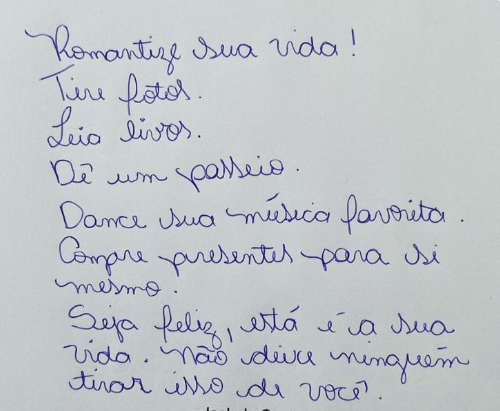 Romantize sua vida!
Tire fotos.
Leia livros.
Dê um passeio.
Dance sua música favorita.
Compre presentes para si
mesmo.
Seja feliz, está é a sua
vida. Não deixe ninguém
tirar isso de você.